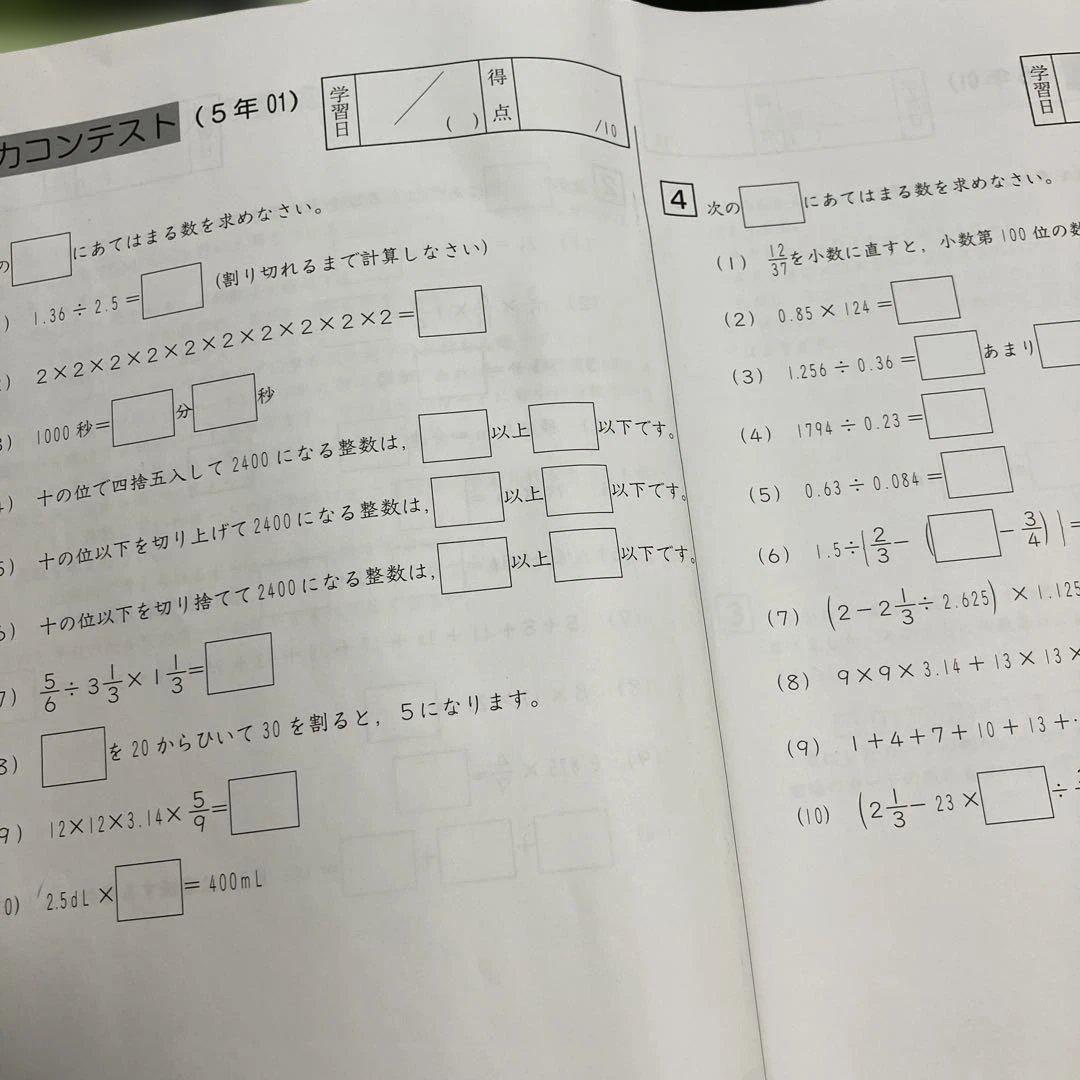 力コンテスト (5年01)
学習日 / ( ) 得点 /10
の□にあてはまる数を求めなさい。
) 1.36÷2.5=□ (割り切れるまで計算しなさい)
) 2×2×2×2×2×2×2×2×2×2=□
3) 1000秒=□分□秒
4) 十の位で四捨五入して2400になる整数は,□以上□以下です。
5) 十の位以下を切り上げて2400になる整数は,□以上□以下です。
6) 十の位以下を切り捨てて2400になる整数は,□以上□以下です。
7) 5/6÷3 1/3×1 1/3=□
8) □を20からひいて30を割ると,5になります。
9) 12×12×3.14×5/9=□
0) 2.5dL×□=400mL
学習日
4 次の□にあてはまる数を求めなさい。
(1) 12/37を小数に直すと,小数第100位の数
(2) 0.85×124=□
(3) 1.256÷0.36=□あまり□
(4) 1794÷0.23=□
(5) 0.63÷0.084=□
(6) 1.5÷{2/3-(□-3/4)}=
(7) (2-2 1/3÷2.625)×1.125
(8) 9×9×3.14+13×13×
(9) 1+4+7+10+13+
(10) (2 1/3-23×□÷